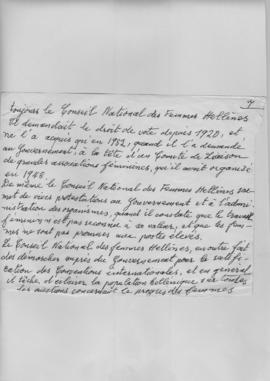 7
toujours le Conseil National des Femmes Hellènes
Il demandait le droit de vote depuis 1920, et
ne l'a acquis qu'en 1952, quand il l'a demandé
au Gouvernement à la tête d'un Comité de Liaison
de grandes associations féminines, qu'il avait organisé
en 1948.
De même le Conseil National des Femmes Hellènes
met de vives protestations au Gouvernement et à l'admi-
nistration des organismes, quand il constate que le travail
féminin n'est pas reconnu à sa valeur, et que les fem-
mes ne sont pas promises aux postes élevés.
Le Conseil National des femmes Hellènes, en outre fait
des démarches auprès du Gouvernement pour la ratifi-
cation des Conventions internationales, et en général
il tâche, d'éclairer la population hellénique sur toutes
les questions concernant le progrès des femmes